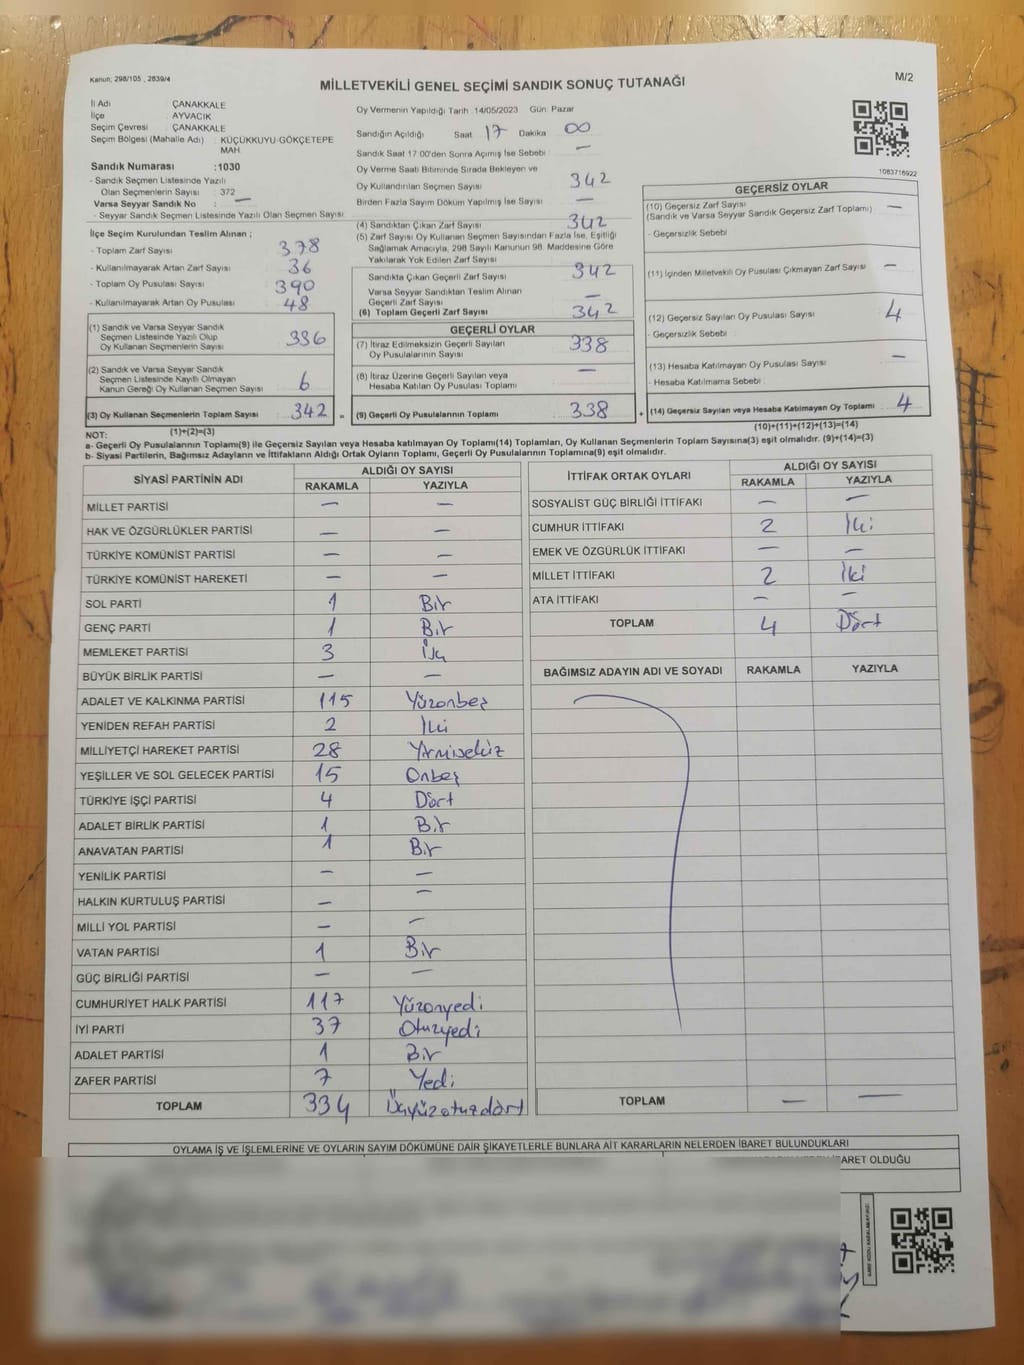 Kanun; 298/105 , 2839/4
MİLLETVEKİLİ GENEL SEÇİMİ SANDIK SONUÇ TUTANAĞI
M/2
İl Adı : ÇANAKKALE
İlçe : AYVACIK
Seçim Çevresi : ÇANAKKALE
Seçim Bölgesi (Mahalle Adı) : KÜÇÜKKUYU-GÖKÇETEPE
MAH
Sandık Numarası :1030
- Sandık Seçmen Listesinde Yazılı
Olan Seçmenlerin Sayısı : 372
Varsa Seyyar Sandık No : —
- Seyyar Sandık Seçmen Listesinde Yazılı Olan Seçmen Sayısı:
İlçe Seçim Kurulundan Teslim Alınan ;
- Toplam Zarf Sayısı 378
- Kullanılmayarak Artan Zarf Sayısı 36
- Toplam Oy Pusulası Sayısı 390
- Kullanılmayarak Artan Oy Pusulası 48
(1) Sandık ve Varsa Seyyar Sandık
Seçmen Listesinde Yazılı Olup
Oy Kullanan Seçmenlerin Sayısı 336
(2) Sandık ve Varsa Seyyar Sandık
Seçmen Listesinde Kayıtlı Olmayan
Kanun Gereği Oy Kullanan Seçmen Sayısı 6
(3) Oy Kullanan Seçmenlerin Toplam Sayısı 342 =
(1)+(2)=(3)
Oy Vermenin Yapıldığı Tarih :14/05/2023 Gün: Pazar
Sandığın Açıldığı Saat 17 Dakika 00
Sandık Saat 17:00'den Sonra Açılmış İse Sebebi : —
Oy Verme Saati Bitiminde Sırada Bekleyen ve
Oy Kullandırılan Seçmen Sayısı 342
Birden Fazla Sayım Döküm Yapılmış İse Sayısı : —
(4) Sandıktan Çıkan Zarf Sayısı 342
(5) Zarf Sayısı Oy Kullanan Seçmen Sayısından Fazla İse, Eşitliği
Sağlamak Amacıyla, 298 Sayılı Kanunun 98. Maddesine Göre
Yakılarak Yok Edilen Zarf Sayısı
Sandıkta Çıkan Geçerli Zarf Sayısı 342
Varsa Seyyar Sandıktan Teslim Alınan
Geçerli Zarf Sayısı —
(6) Toplam Geçerli Zarf Sayısı 342
GEÇERLİ OYLAR
(7) İtiraz Edilmeksizin Geçerli Sayılan
Oy Pusulalarının Sayısı 338
(8) İtiraz Üzerine Geçerli Sayılan veya
Hesaba Katılan Oy Pusulası Toplamı —
(9) Geçerli Oy Pusulalarının Toplamı 338 +
1083716922
GEÇERSİZ OYLAR
(10) Geçersiz Zarf Sayısı
(Sandık ve Varsa Seyyar Sandık Geçersiz Zarf Toplamı) —
- Geçersizlik Sebebi :
(11) İçinden Milletvekili Oy Pusulası Çıkmayan Zarf Sayısı —
(12) Geçersiz Sayılan Oy Pusulası Sayısı 4
- Geçersizlik Sebebi :
(13) Hesaba Katılmayan Oy Pusulası Sayısı —
- Hesaba Katılmama Sebebi :
(14) Geçersiz Sayılan veya Hesaba Katılmayan Oy Toplamı 4
(10)+(11)+(12)+(13)=(14)
NOT:
a- Geçerli Oy Pusulalarının Toplamı(9) ile Geçersiz Sayılan veya Hesaba katılmayan Oy Toplamı(14) Toplamları, Oy Kullanan Seçmenlerin Toplam Sayısına(3) eşit olmalıdır. (9)+(14)=(3)
b- Siyasi Partilerin, Bağımsız Adayların ve İttifakların Aldığı Ortak Oyların Toplamı, Geçerli Oy Pusulalarının Toplamına(9) eşit olmalıdır.
SİYASİ PARTİNİN ADI ALDIĞI OY SAYISI
RAKAMLA YAZIYLA
MİLLET PARTİSİ — —
HAK VE ÖZGÜRLÜKLER PARTİSİ — —
TÜRKİYE KOMÜNİST PARTİSİ — —
TÜRKİYE KOMÜNİST HAREKETİ — —
SOL PARTİ 1 Bir
GENÇ PARTİ 1 Bir
MEMLEKET PARTİSİ 3 Üç
BÜYÜK BİRLİK PARTİSİ — —
ADALET VE KALKINMA PARTİSİ 115 Yüzonbeş
YENİDEN REFAH PARTİSİ 2 İki
MİLLİYETÇİ HAREKET PARTİSİ 28 Yirmisekiz
YEŞİLLER VE SOL GELECEK PARTİSİ 15 Onbeş
TÜRKİYE İŞÇİ PARTİSİ 4 Dört
ADALET BİRLİK PARTİSİ 1 Bir
ANAVATAN PARTİSİ 1 Bir
YENİLİK PARTİSİ — —
HALKIN KURTULUŞ PARTİSİ — —
MİLLİ YOL PARTİSİ — —
VATAN PARTİSİ 1 Bir
GÜÇ BİRLİĞİ PARTİSİ — —
CUMHURİYET HALK PARTİSİ 117 Yüzonyedi
İYİ PARTİ 37 Otuzyedi
ADALET PARTİSİ 1 Bir
ZAFER PARTİSİ 7 Yedi
TOPLAM 334 Üçyüzotuzdört
İTTİFAK ORTAK OYLARI ALDIĞI OY SAYISI
RAKAMLA YAZIYLA
SOSYALİST GÜÇ BİRLİĞİ İTTİFAKI — —
CUMHUR İTTİFAKI 2 İki
EMEK VE ÖZGÜRLÜK İTTİFAKI — —
MİLLET İTTİFAKI 2 İki
ATA İTTİFAKI — —
TOPLAM 4 Dört
BAĞIMSIZ ADAYIN ADI VE SOYADI RAKAMLA YAZIYLA
TOPLAM — —
OYLAMA İŞ VE İŞLEMLERİNE VE OYLARIN SAYIM DÖKÜMÜNE DAİR ŞİKAYETLERLE BUNLARA AİT KARARLARIN NELERDEN İBARET BULUNDUKLARI
BARET OLDUĞU